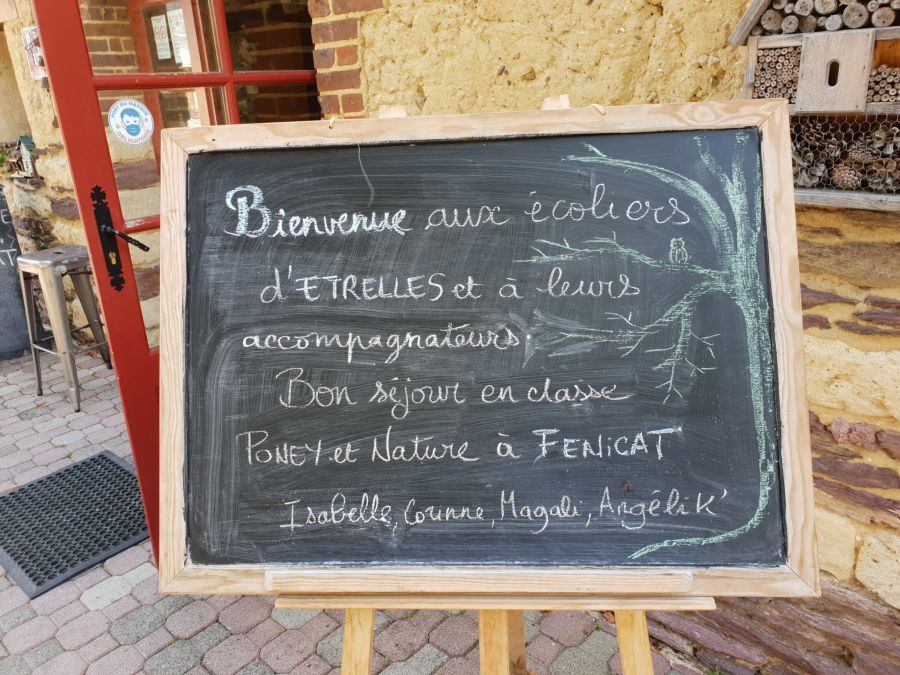 PORT DU MASQUE
OBLIGATOIRE
Bienvenue aux écoliers
d'ETRELLES et à leurs
accompagnateurs.
Bon séjour en classe
PONEY et Nature à FENiCAT
Isabelle, Corinne, Magali, Angélik'